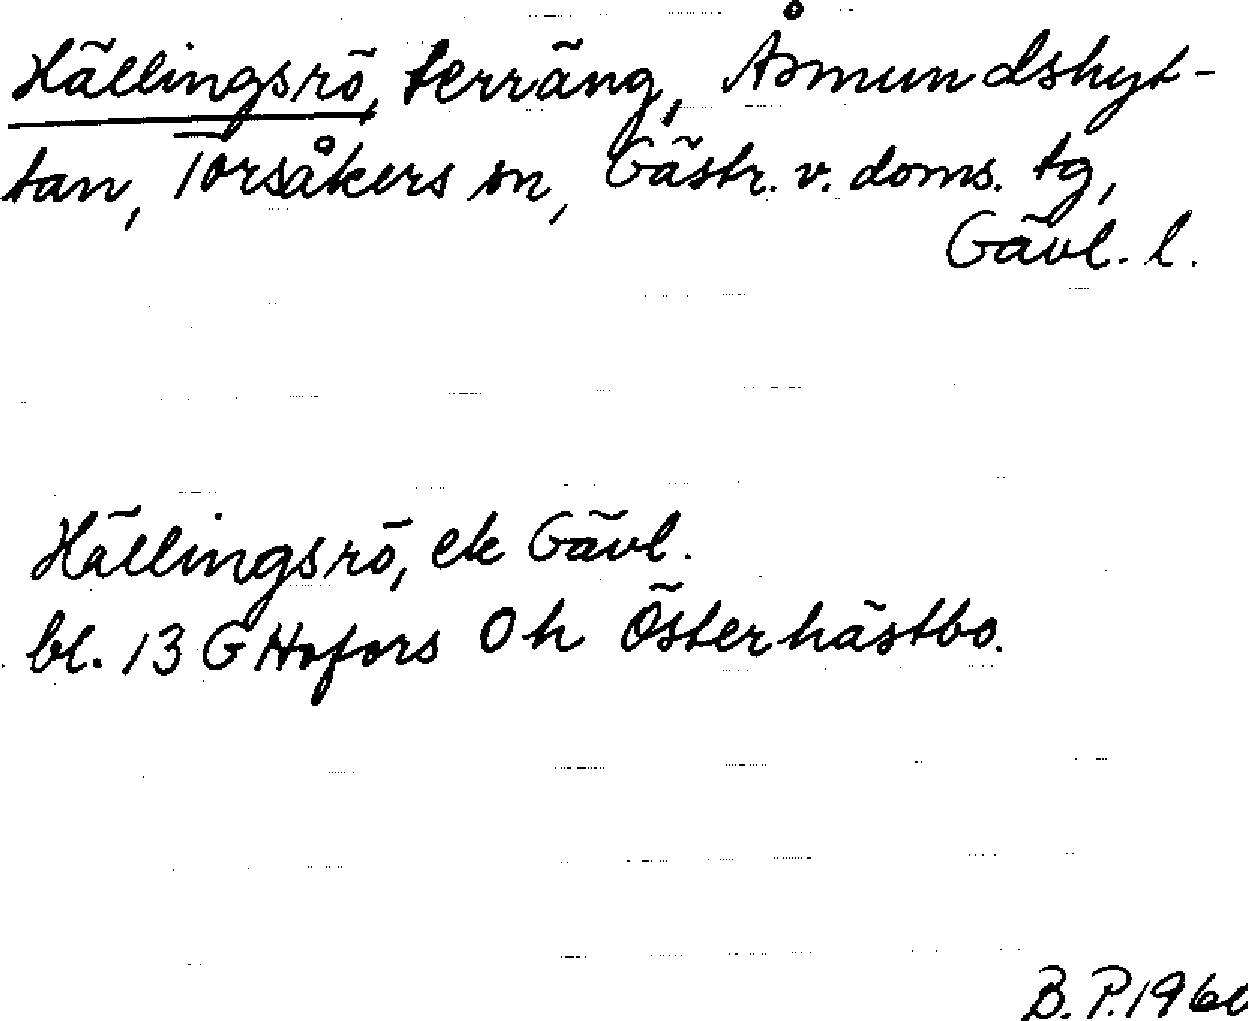 Hällingsrö, terräng, Åsmundshyt-
tan, Torsåkers sn, Gästr. v. doms. tg,
Gävl. l.
Hällingsrö, ek Gävl.
bl. 13 G Hofors 0h Österhästbo.
B. P. 1960